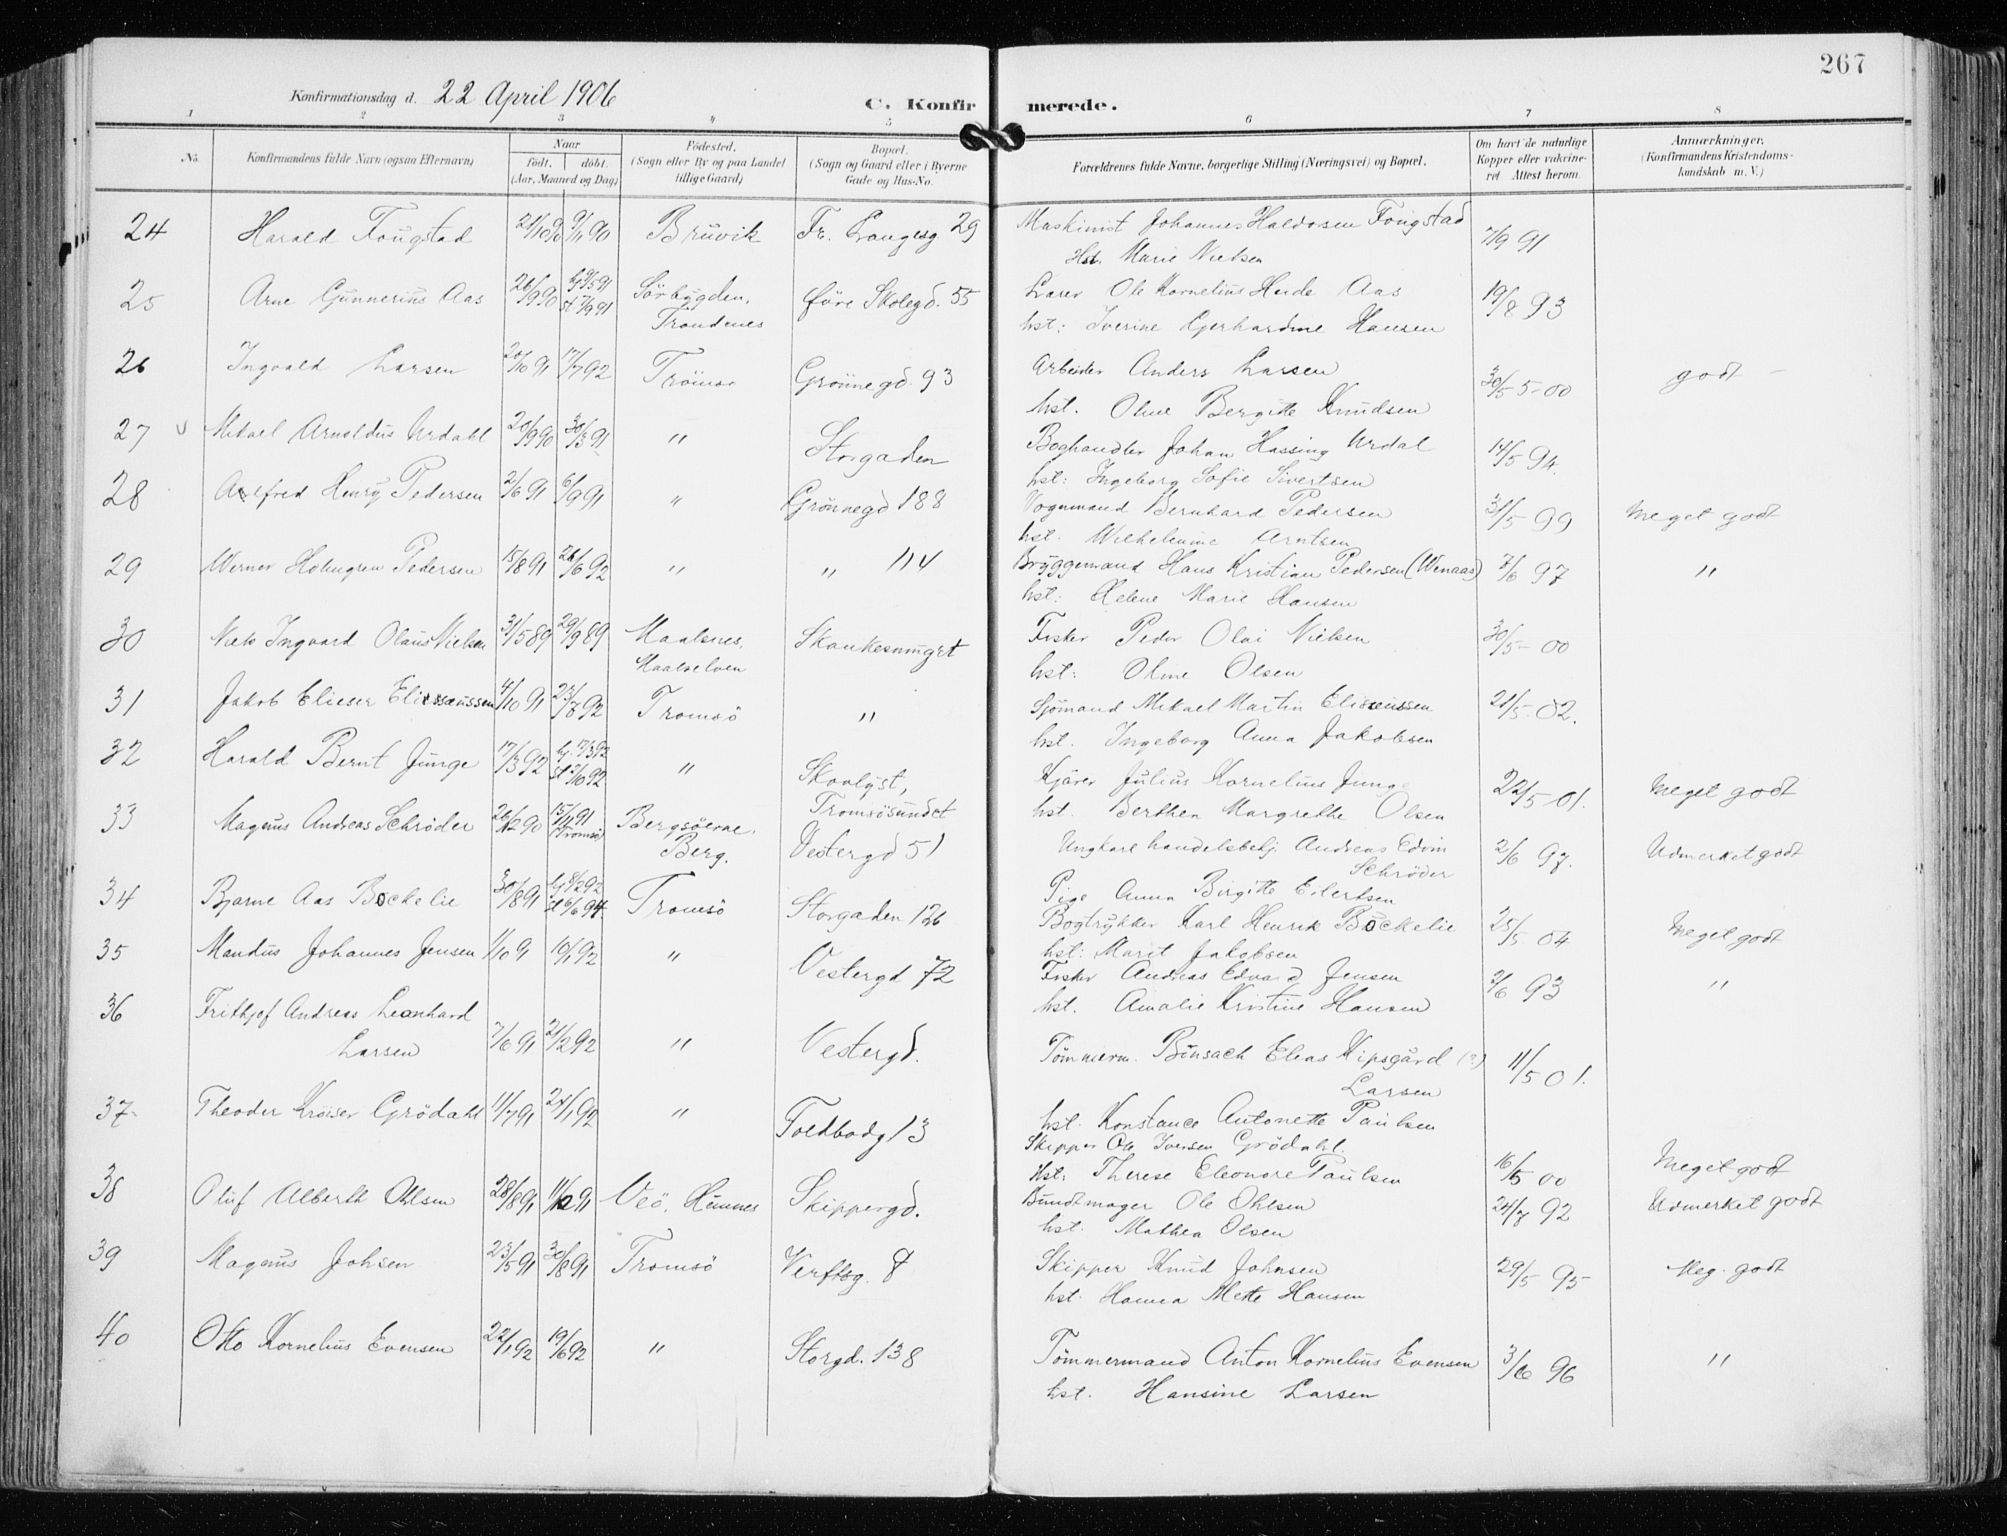 267
Konfirmationsdag d. 22 April 1906
C. Konfirmerede.
1 2 3 4 5 6 7 8
No.
Konfirmandens fulde Navn (ogsaa Efternavn)
Naar
født. døbt.
(Aar, Maaned og Dag)
Fødested.
(Sogn eller By og paa Landet tillige Gaard)
Bopæl.
(Sogn og Gaard eller i Byerne Gade og Hus-No.
Forældrenes fulde Navne, borgerlige Stilling (Næringsvei) og Bopæl.
Om havt de naturlige Kopper eller vakcineret Attest herom.
Anmærkninger.
(Konfirmandens Kristendomskundskab m. V.)
24 Harald Fougstad 21/10 90 9/11 90 Bruvik Fr. Langesg 29 Maskinist Johannes Haldorsen Fougstad 7/9 91
Hst. Marie Nielsen
25 Arne Gunnerius Aas 26/9 90 hj 9/5 91 st 7/9 91 Sörbygden, Trondenes øvre Skolegd. 55 Lærer Ole Kornelius Heide Aas 19/8 93
hst: Iverine Gerhardine Hansen
26 Ingvald Larsen 20/10 91 17/7 92 Tromsø Grönnegd. 93 Arbeider Anders Larsen 30/5 00 godt
hst. Oline Bergitte Knudsen
27 Mikael Arnoldus Urdahl 20/9 90 30/3 91 " Storgaden Boghandler Johan Hassing Urdal 14/5 94.
hst: Ingeborg Sofie Sivertsen
28 Alfred Henry Pedersen 2/6 91 6/9 91 " Grönnegd 188 Vognmand Bernhard Pedersen 31/5 99 Meget godt
hst. Wilhelmine Arntsen
29 Werner Holmgren Pedersen 15/8 91 26/6 92 " " 114 Bryggemand Hans Kristian Pedersen (Wenaas) 7/6 97 "
hst: Helene Marie Hansen
30 Niels Ingvard Olaus Nielsen 31/5 89 29/9 89 Maalsnes, Maalselven Skankesmuget Fisker Peder Olai Nielsen 30/5 00
hst: Oline Olsen
31 Jakob Elieser Elisæussen 4/10 91 23/7 92 Tromsö " Sjömand Mikael Martin Elisæussen 21/5 02.
hst. Ingeborg Anna Jakobsen
32 Harald Bernt Junge 17/3 92 hj. 17/3 92 st 2/10 92 " Skovlyst, Tromsösundet Kjörer Julius Kornelius Junge 22/5 01. Meget godt
hst. Berthea Margrethe Olsen
33 Magnus Andreas Schrøder 26/12 90 15/11 91 (Tromsö) Bergsöerne, Berg. Vestergd 51 Ungkarl handelsbetj. Andreas Edvin Schröder 2/6 97. Udmerket godt
Pige Anna Birgitte Eilertsen
34 Bjarne Aas Bøckelie 30/8 91 hj 8/2 92 st 6/6 94 Tromsö Storgaden 126 Bogtrykker Karl Henrik Bøckelie 25/5 04 Meget godt
hst: Marit Jakobsen
35 Mandus Johannes Jensen 1/10 91 10/1 92 " Vestergd 72 Fisker Andreas Edvard Jensen 2/6 93 "
hst. Amalie Kristine Hansen
36 Frithjof Andreas Leonhard Larsen 7/6 91 21/2 92 " Vestergd. Tömmerm. Binsach Elias Kipsgård (?) Larsen 11/5 01.
hst. Konstance Antonette Paulsen
37 Theodor Kröiser Grödahl 11/7 91 24/1 92 " Toldbodg 13 Skipper Ole Iversen Grödahl. 16/5 00 Meget godt
Hst: Therese Eleonore Paulsen
38 Oluf Alberth Ohlsen 28/8 91 11/12 91 Veö, Hennes Skippergd. Bundtmager Ole Ohlsen 24/7 92 Udmerket godt
hst. Mathea Olsen
39 Magnus Johsen 23/5 91 30/8 91 Tromsö Verftsg. 8 Skipper Knud Johnsen 29/5 95 Meg. godt
hst. Hanna Mette Hansen
40 Otto Kornelius Evensen 22/1 92 19/6 92 " Storgd. 138 Tömmermand Anton Kornelius Evensen 3/6 96 "
hst. Hansine Larsen